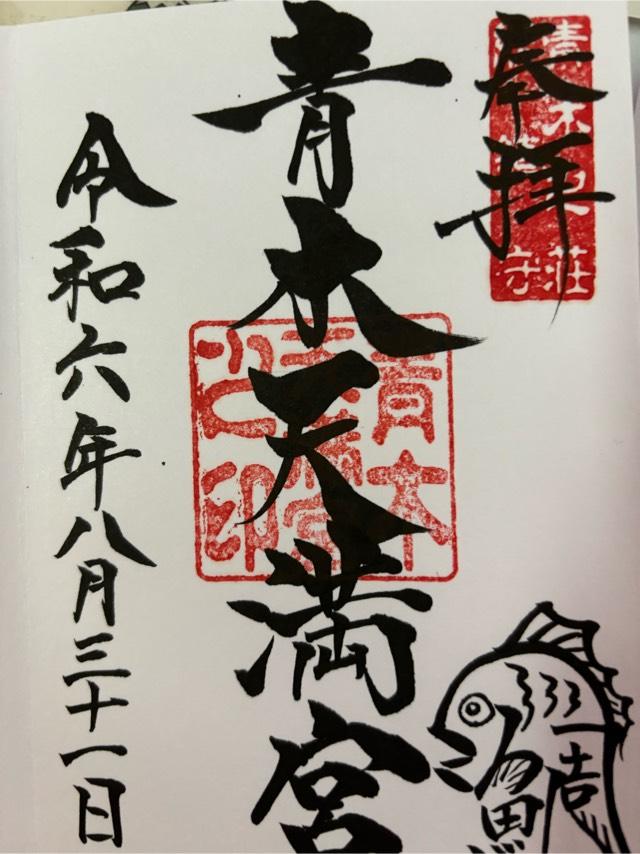 奉拝
青木天満宮
令和六年八月三十一日
青木
天満宮
之印